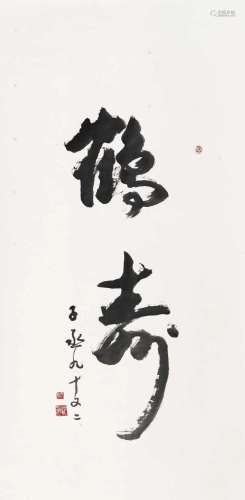 鶴壽
子丞九十又二